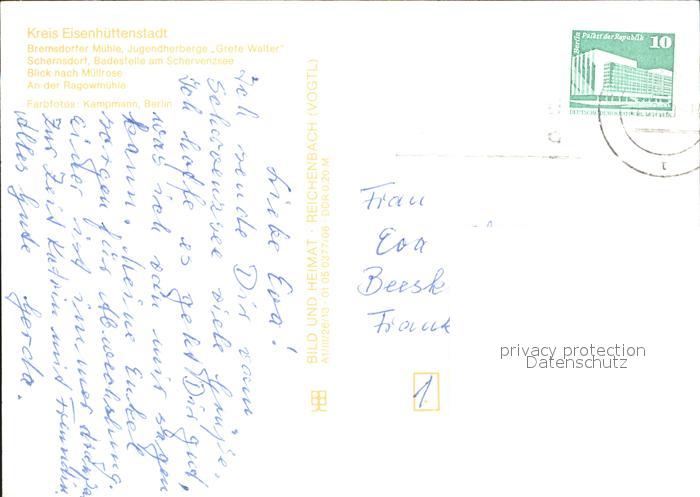 Kreis Eisenhüttenstadt
Bremsdorfer Mühle, Jugendherberge „Grete Walter"
Schernsdorf, Badestelle am Schervenzsee
Blick nach Müllrose
An der Ragowmühle
Farbfotos: Kampmann, Berlin
Liebe Eva!
Ich sende Dir vom
Schervenzsee viele Grüße,
ich hoffe es geht Dir gut,
was ich von mir sagen
kann. Meine Enkel
sorgen für Abwechslung.
einer ist immer da
Zur Zeit Katrin mit Freundin.
Alles Gute Gerda.
BILD UND HEIMAT · REICHENBACH (VOGTL)
A1/III/26/13 · 01 05 0377/06 · DDR 0,20 M
Berlin Palast der Republik
10
DEUTSCHE DEMOKRATISCHE REPUBLIK
Frau
Eva
Beesk
Frank
1
privacy protection
Datenschutz